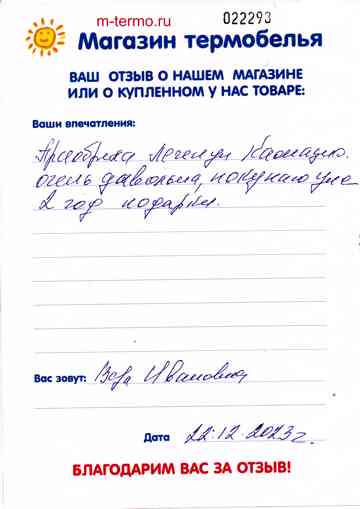 m-termo.ru
022293
Магазин термобелья
ВАШ ОТЗЫВ О НАШЕМ МАГАЗИНЕ
ИЛИ О КУПЛЕННОМ У НАС ТОВАРЕ:
Ваши впечатления:
очень довольна, покупаю уже
2 год подарки.
Вас зовут: Вера Ивановна
Дата 22.12.2023г.
БЛАГОДАРИМ ВАС ЗА ОТЗЫВ!